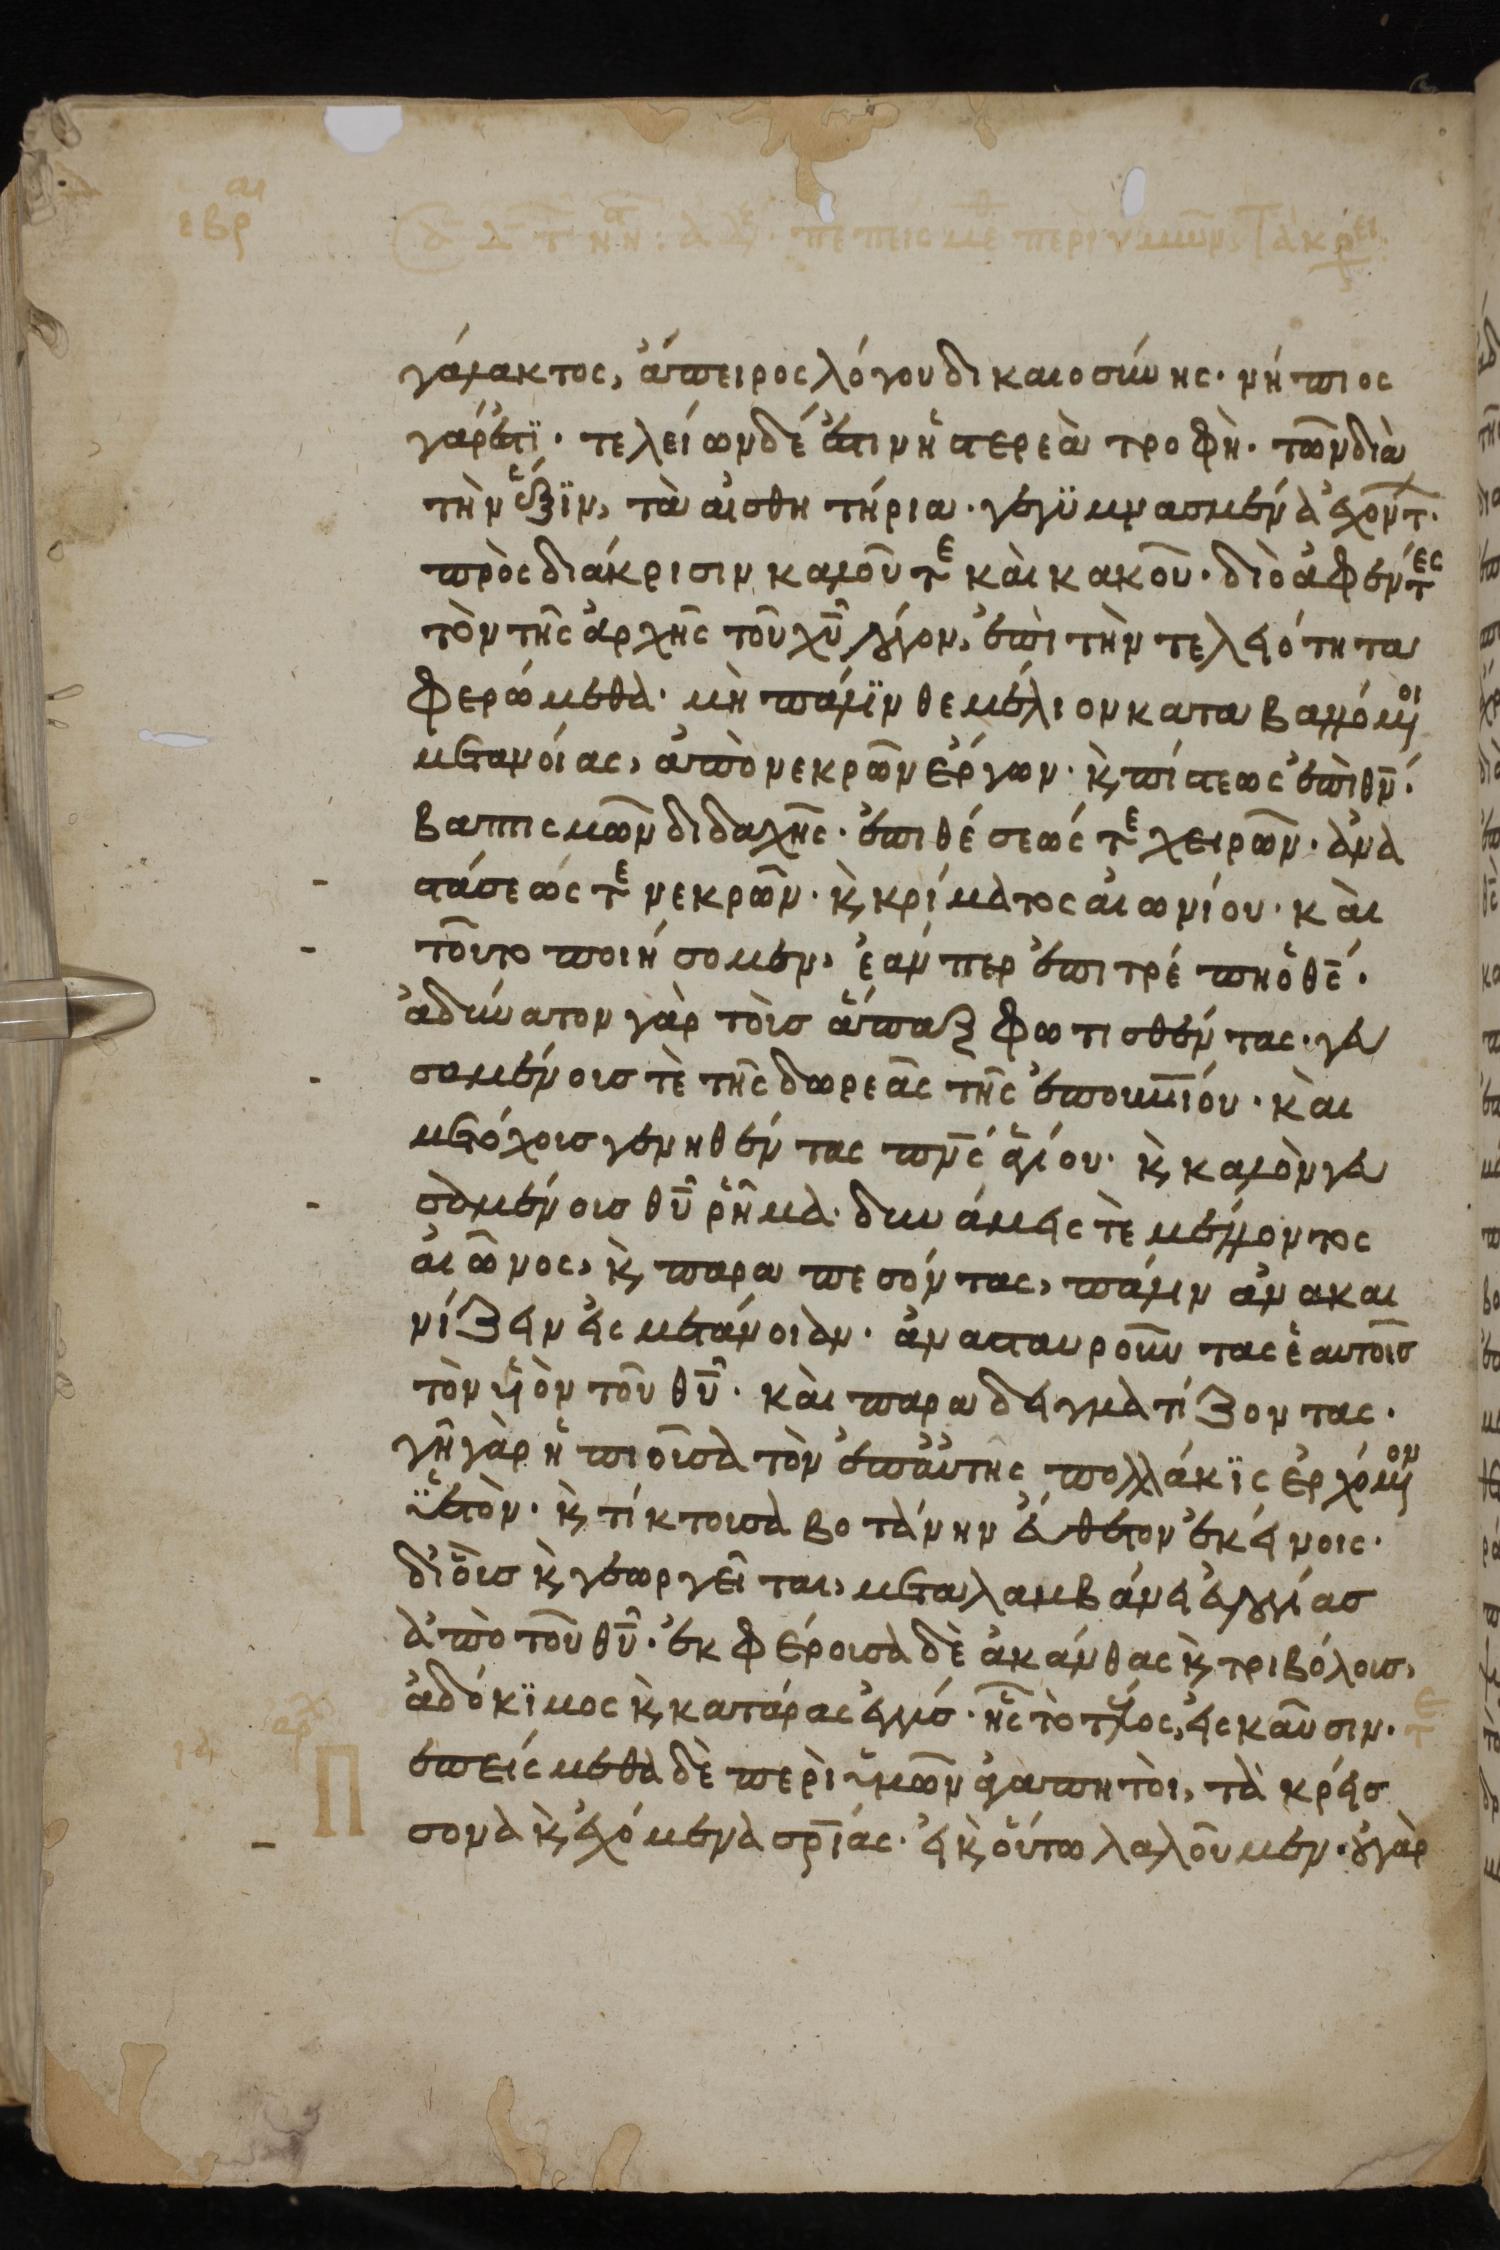 εβρ αι
γάλακτος, ἄπειρος λόγου δικαιοσύνης· νήπιος
γάρ ἐστϊ· τελείων δέ ἐστιν ἡ στερεὰ τροφὴ· τῶν διὰ
τὴν ἕξϊν, τὰ αἰσθητήρια· γεγϋμνασμένα ἐχόντ·
πρὸς διάκρισιν καλοῦ τε καὶ κακοῦ· διὸ ἀφέντες
τὸν τῆς ἀρχῆς τοῦ χυ λόγον, ἐπὶ τὴν τελειότητα
φερώμεθα· μὴ πάλϊν θεμέλιον καταβαλλόμενοι
μετανοίας, ἀπὸ νεκρῶν ἔργων· κ πίστεως ἐπὶ θν·
βαπτισμῶν διδαχῆς· ἐπιθέσεώς τε χειρῶν· ἀνα
στάσεώς τε νεκρῶν· κ κρίματος αἰωνίου· καὶ
τοῦτο ποιήσομεν, ἐάν περ ἐπιτρέπη ὁ θς·
ἀδύνατον γὰρ τοὺς ἅπαξ φωτισθέντας· γευ
σαμένους τὲ τῆς δωρεᾶς τῆς ἐπουνίου· καὶ
μετόχους γενηθέντας πνς ἁγίου· κ καλὸν γευ
σαμένους θυ ῥῆμα· δυνάμεις τὲ μέλλοντος
αἰῶνος, κ παραπεσόντας, πάλιν ἀνακαι
νίζειν εἰς μετάνοιαν· ἀνασταυροῦντας ἑαυτοῖς
τὸν υἱὸν τοῦ θυ· καὶ παραδειγματίζοντας·
γῆ γὰρ ἡ πιοῦσα τὸν ἐπ' αὐτῆς πολλάκϊς ἐρχόμενον
ὑετὸν· κ τίκτουσα βοτάνην εὔθετον ἐκείνοις·
δι' οὓς κ γεωργεῖται, μεταλαμβάνει εὐλογίας
ἀπὸ τοῦ θυ· ἐκφέρουσα δὲ ἀκάνθας κ τριβόλους,
ἀδόκϊμος κ κατάρας ἐγγύς· ἧς τὸ τέλος, εἰς καῦσιν· τε
αρχ
Π επείσμεθα δὲ περὶ ὑμῶν ἀγαπητοὶ, τὰ κρείσ
σονα κ ἐχόμενα σρίας· εἰ κ οὕτω λαλοῦμεν· οὐ γὰρ